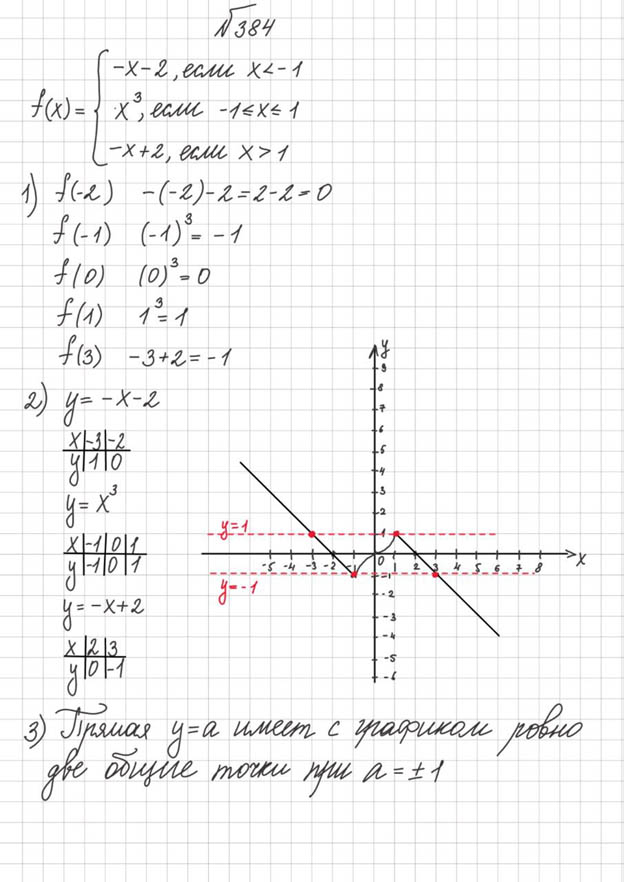 √384
f(x) = { -x-2, если x<-1
x³, если -1≤x≤1
-x+2, если x>1
1) f(-2) -(-2)-2=2-2=0
f(-1) (-1)³=-1
f(0) (0)³=0
f(1) 1³=1
f(3) -3+2=-1
2) y=-x-2
x|-3|-2
y|1|0
y=x³
x|-1|0|1
y|-1|0|1
y=-x+2
x|2|3
y|0|-1
y
9
8
7
6
5
4
3
2
1
y=1
-5 -4 -3 -2 -1 0 1 2 3 4 5 6 7 8 x
y=-1
-1
-2
-3
-4
-5
-6
3) Прямая y=a имеет с графиком ровно
две общие точки при a=±1